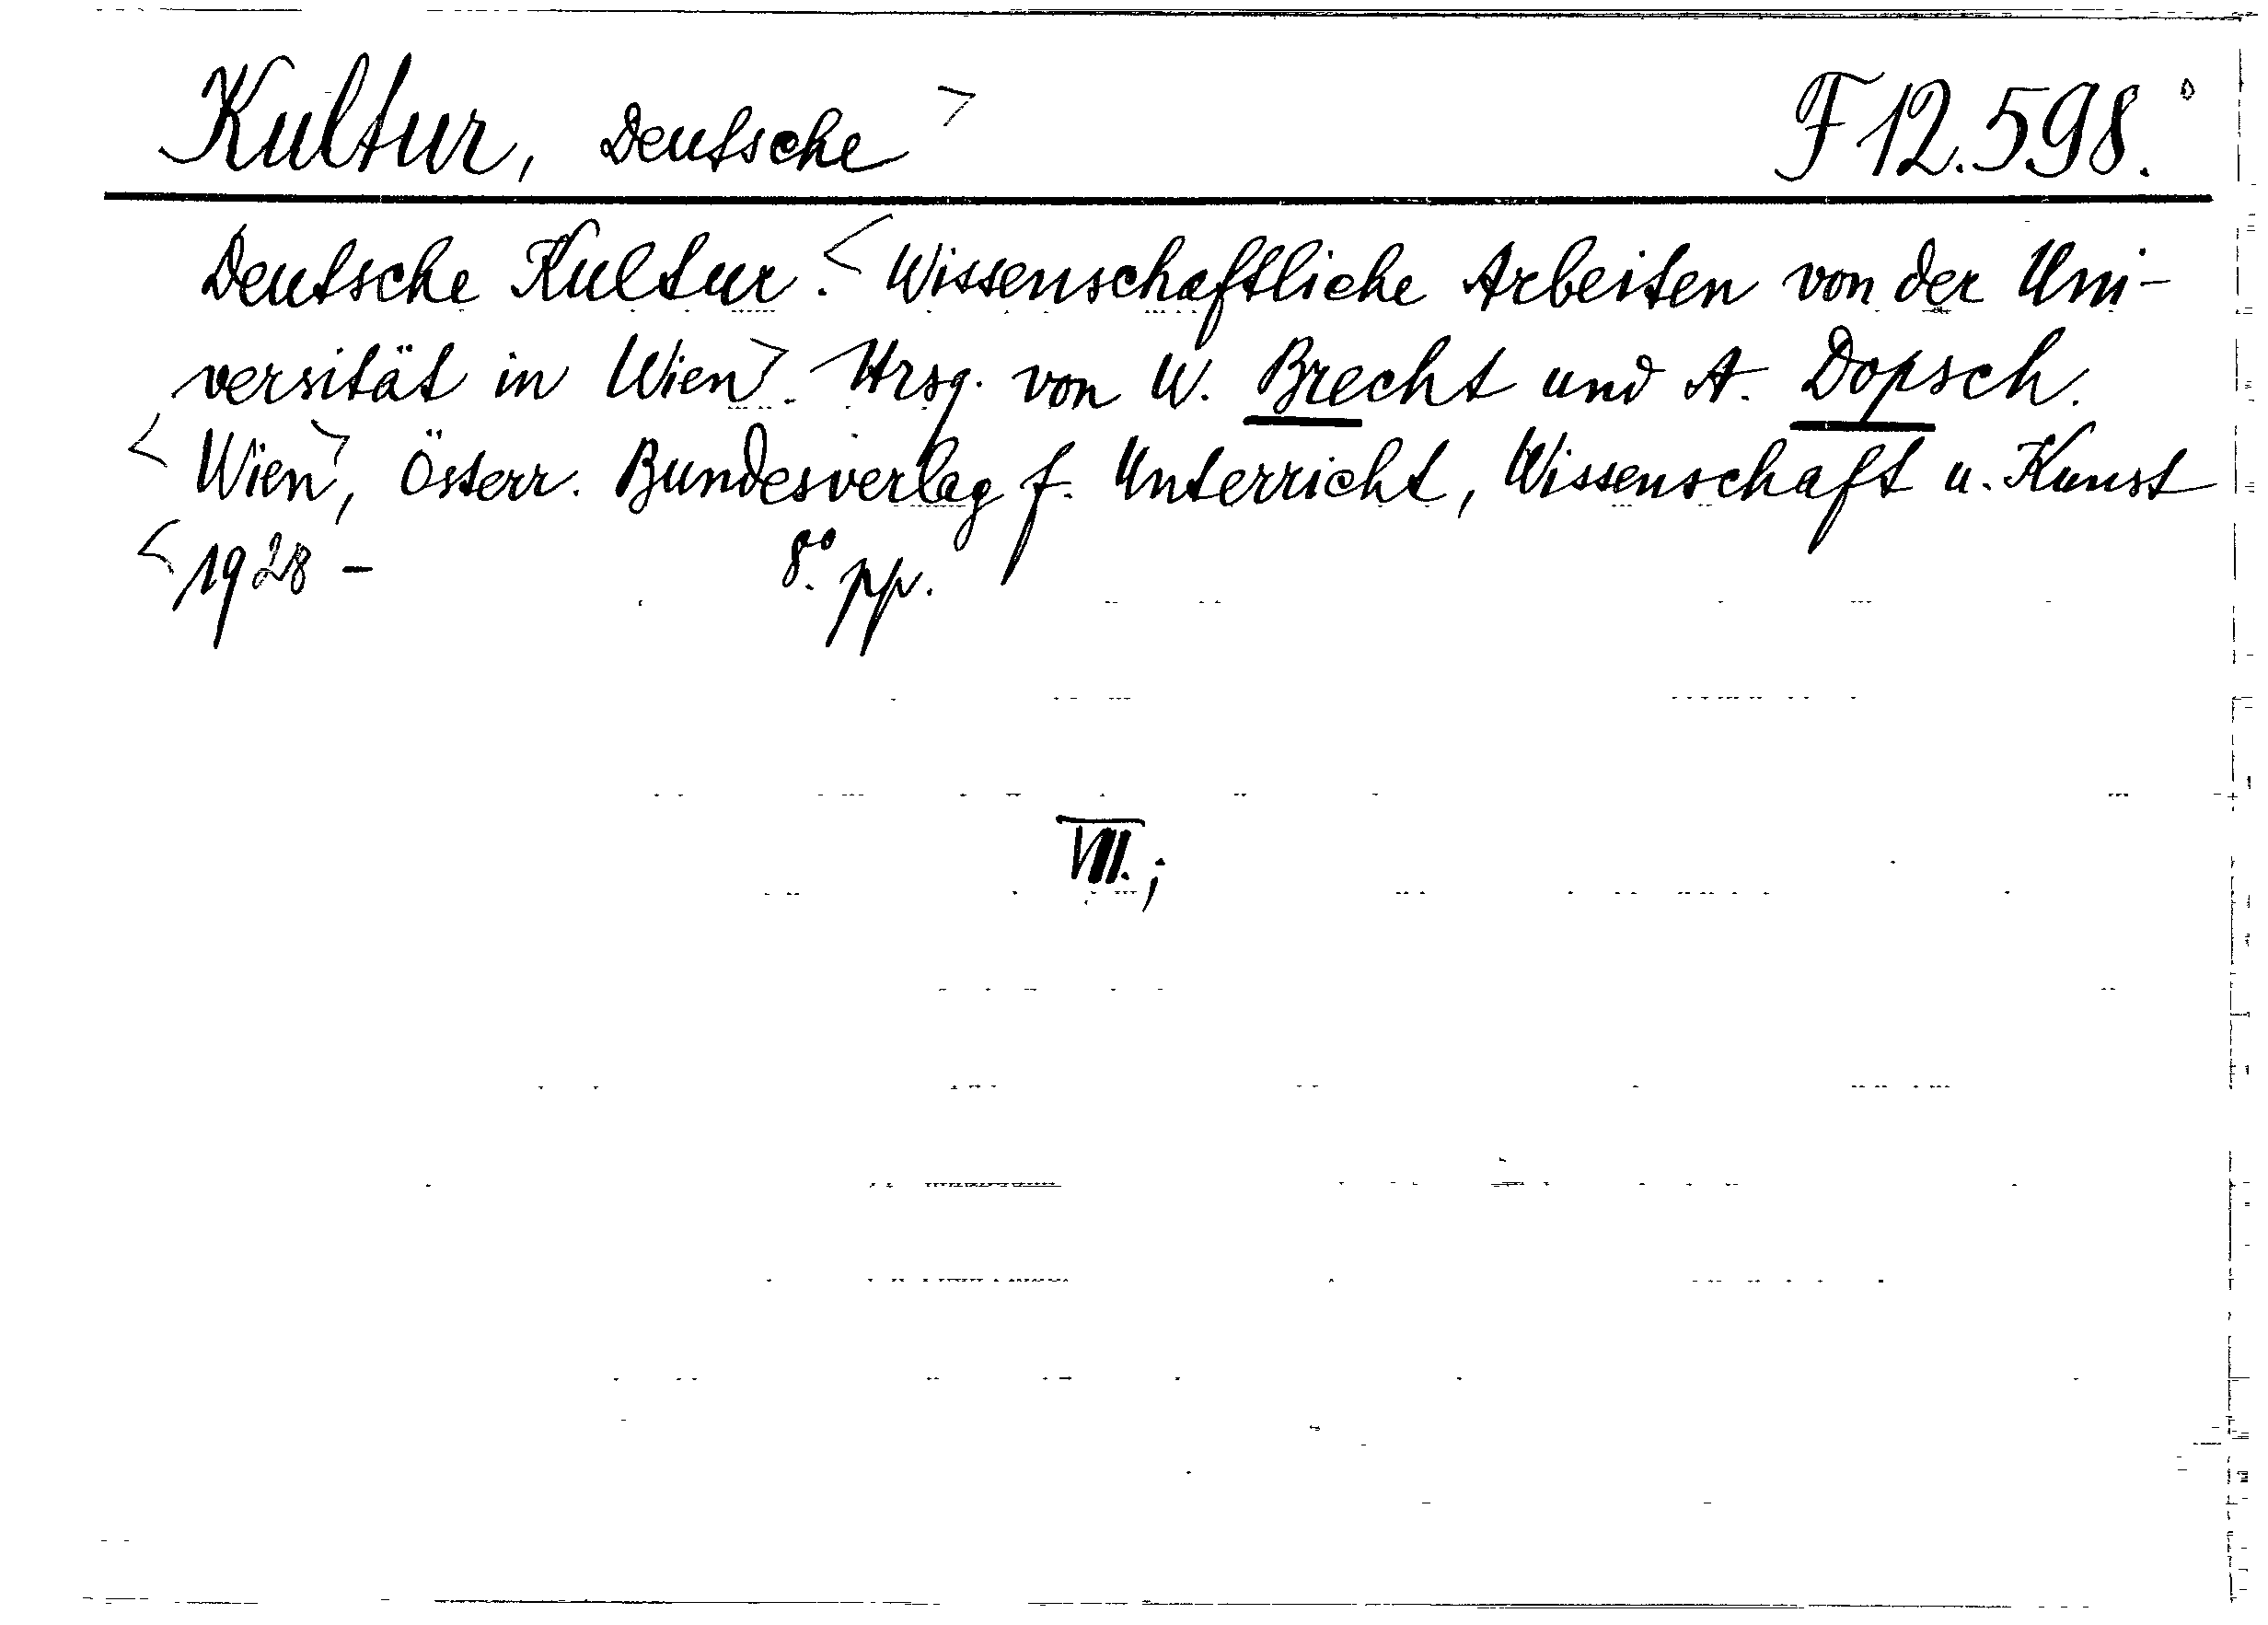 Kultur, Deutsche > F 12.598.
Deutsche Kultur. < Wissenschaftliche Arbeiten von der Uni-
versität in Wien >. Hrsg. von W. Brecht und A. Dopsch.
< Wien >, Österr. Bundesverlag f. Unterricht, Wissenschaft u. Kunst
< 1928 - 8.° pp.
VIII.;